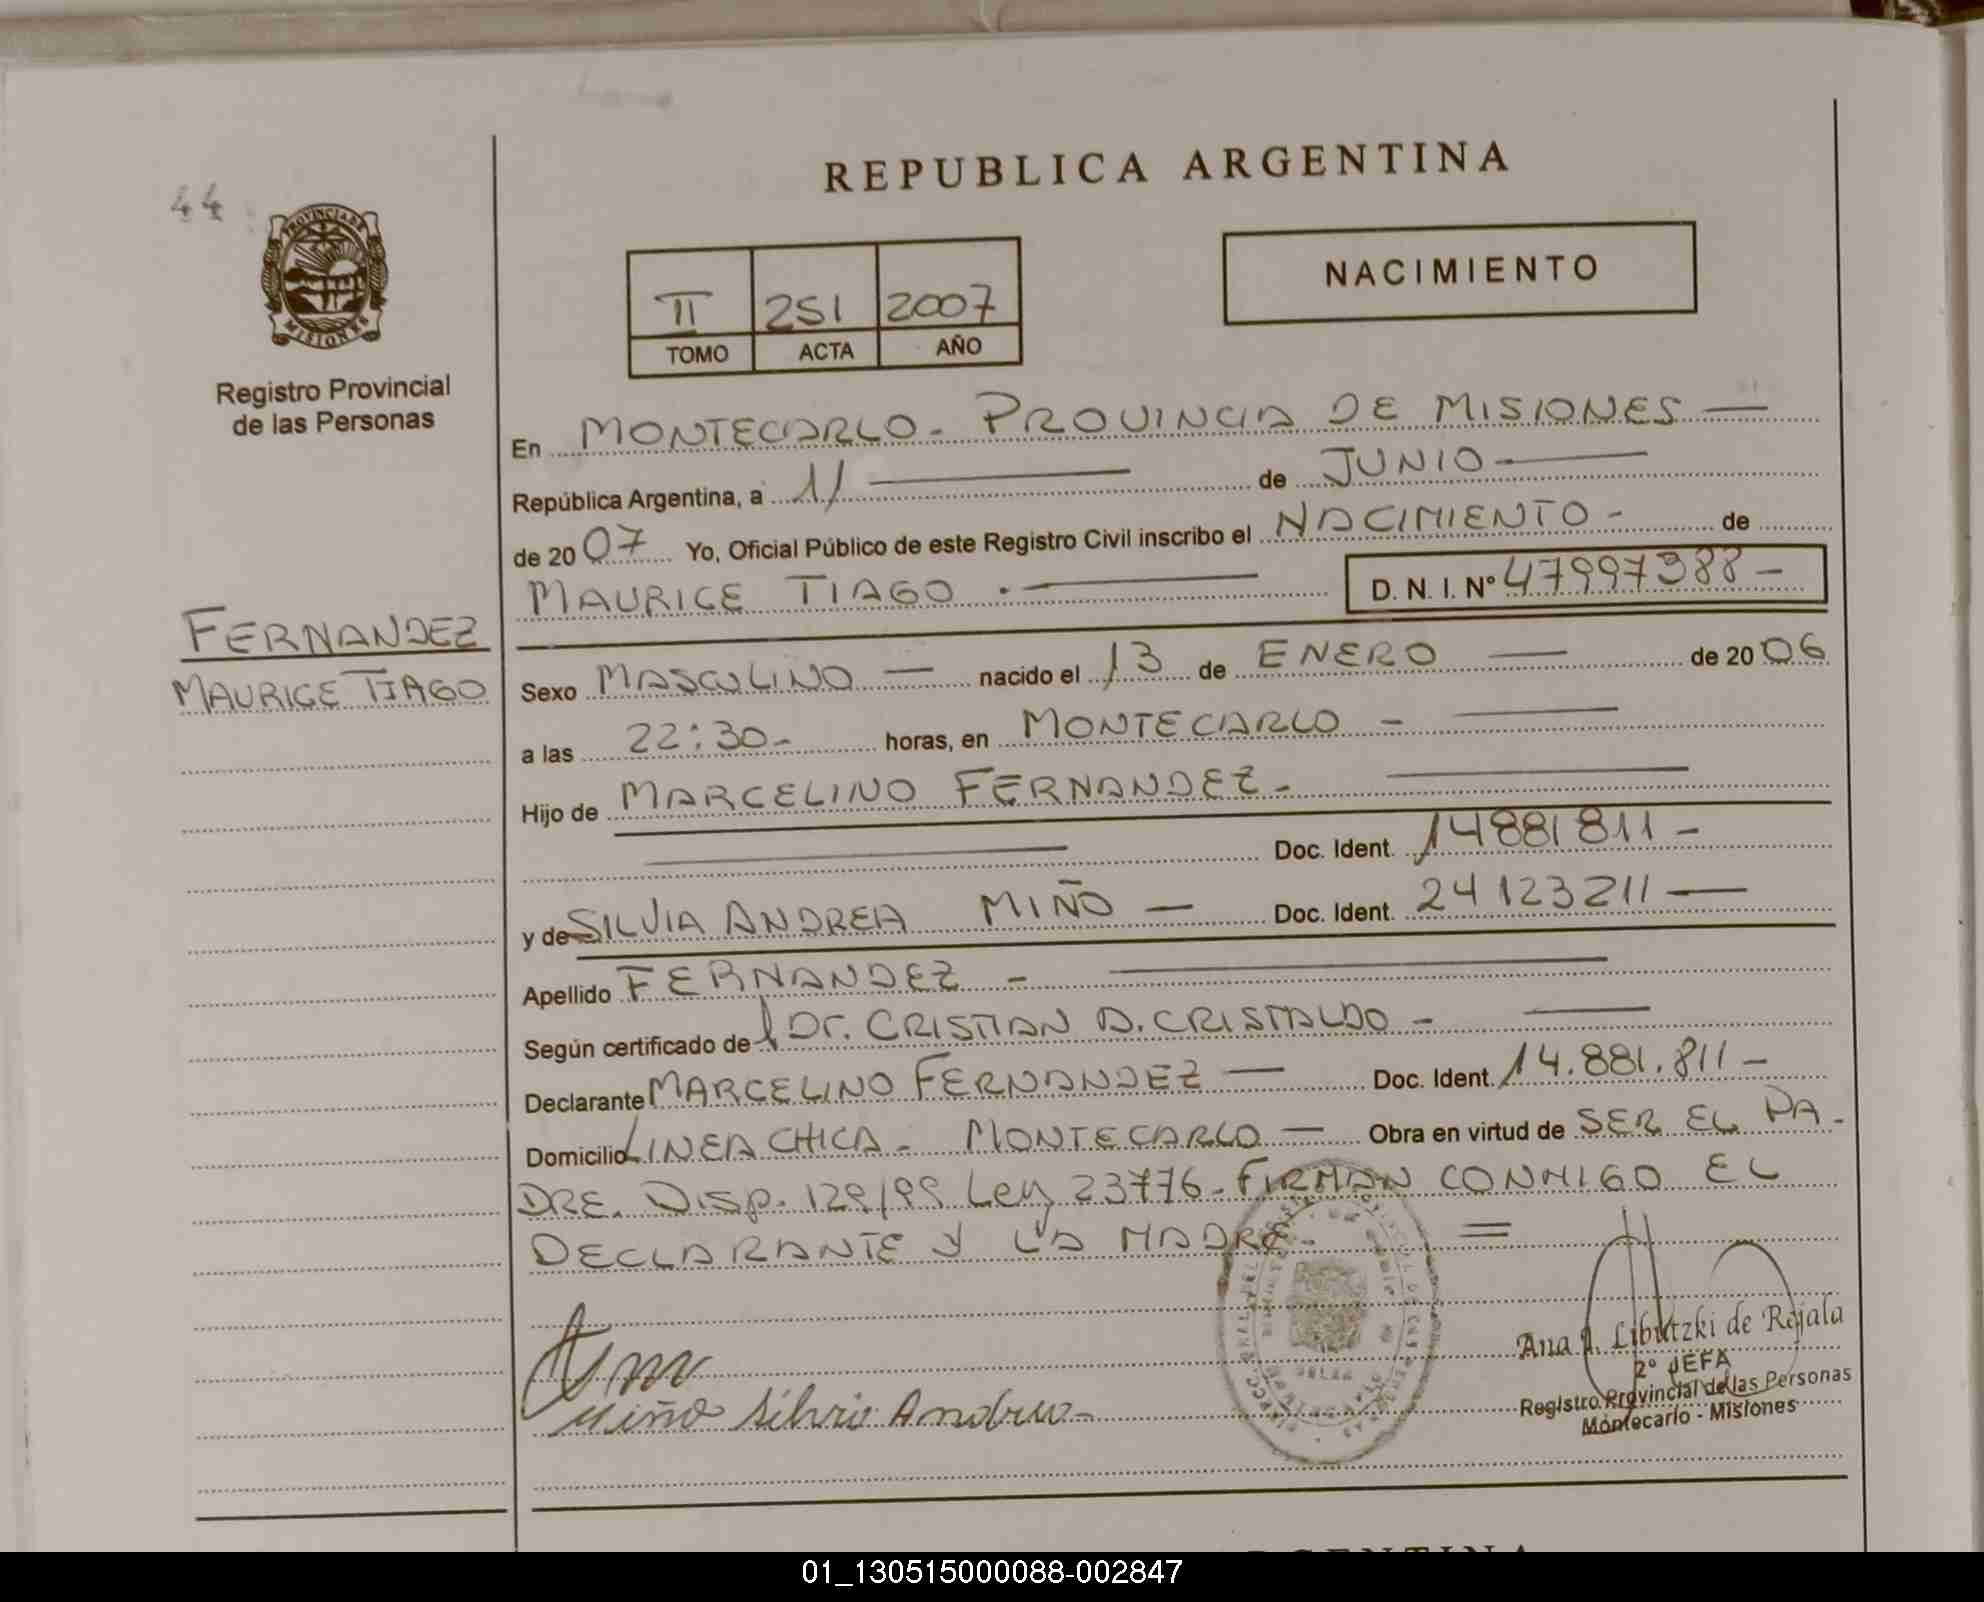 REPUBLICA ARGENTINA
44
PROVINCIA DE
MISIONES
Registro Provincial
de las Personas
NACIMIENTO
II 251 2007
TOMO ACTA AÑO
En MONTECARLO - PROVINCIA DE MISIONES —
República Argentina, a 11 — de JUNIO —
de 2007 Yo, Oficial Público de este Registro Civil inscribo el NACIMIENTO - de
MAURICE TIAGO . — D. N. I. Nº 47997388 -
FERNANDEZ
MAURICE TIAGO
Sexo MASCULINO — nacido el 13 de ENERO — de 2006
a las 22:30- horas, en MONTECARLO - —
Hijo de MARCELINO FERNANDEZ - —
— Doc. Ident. 14881811 -
y de SILVIA ANDREA MIÑO — Doc. Ident. 24123211 —
Apellido FERNANDEZ - —
Según certificado de Dr. CRISTIAN A. CRISTALDO - —
Declarante MARCELINO FERNANDEZ — Doc. Ident. 14.881.811 -
Domicilio LINEA CHICA - MONTECARLO — Obra en virtud de SER EL PA-
DRE. Disp. 129/99 Ley 23776 - FIRMAN CONMIGO EL
DECLARANTE Y LA MADRE - =
Miño Silvia Andrea -
Ana Libutzki de Rejala
2º JEFA
Registro Provincial de las Personas
Montecarlo - Misiones
ARGENTINA
01_130515000088-002847